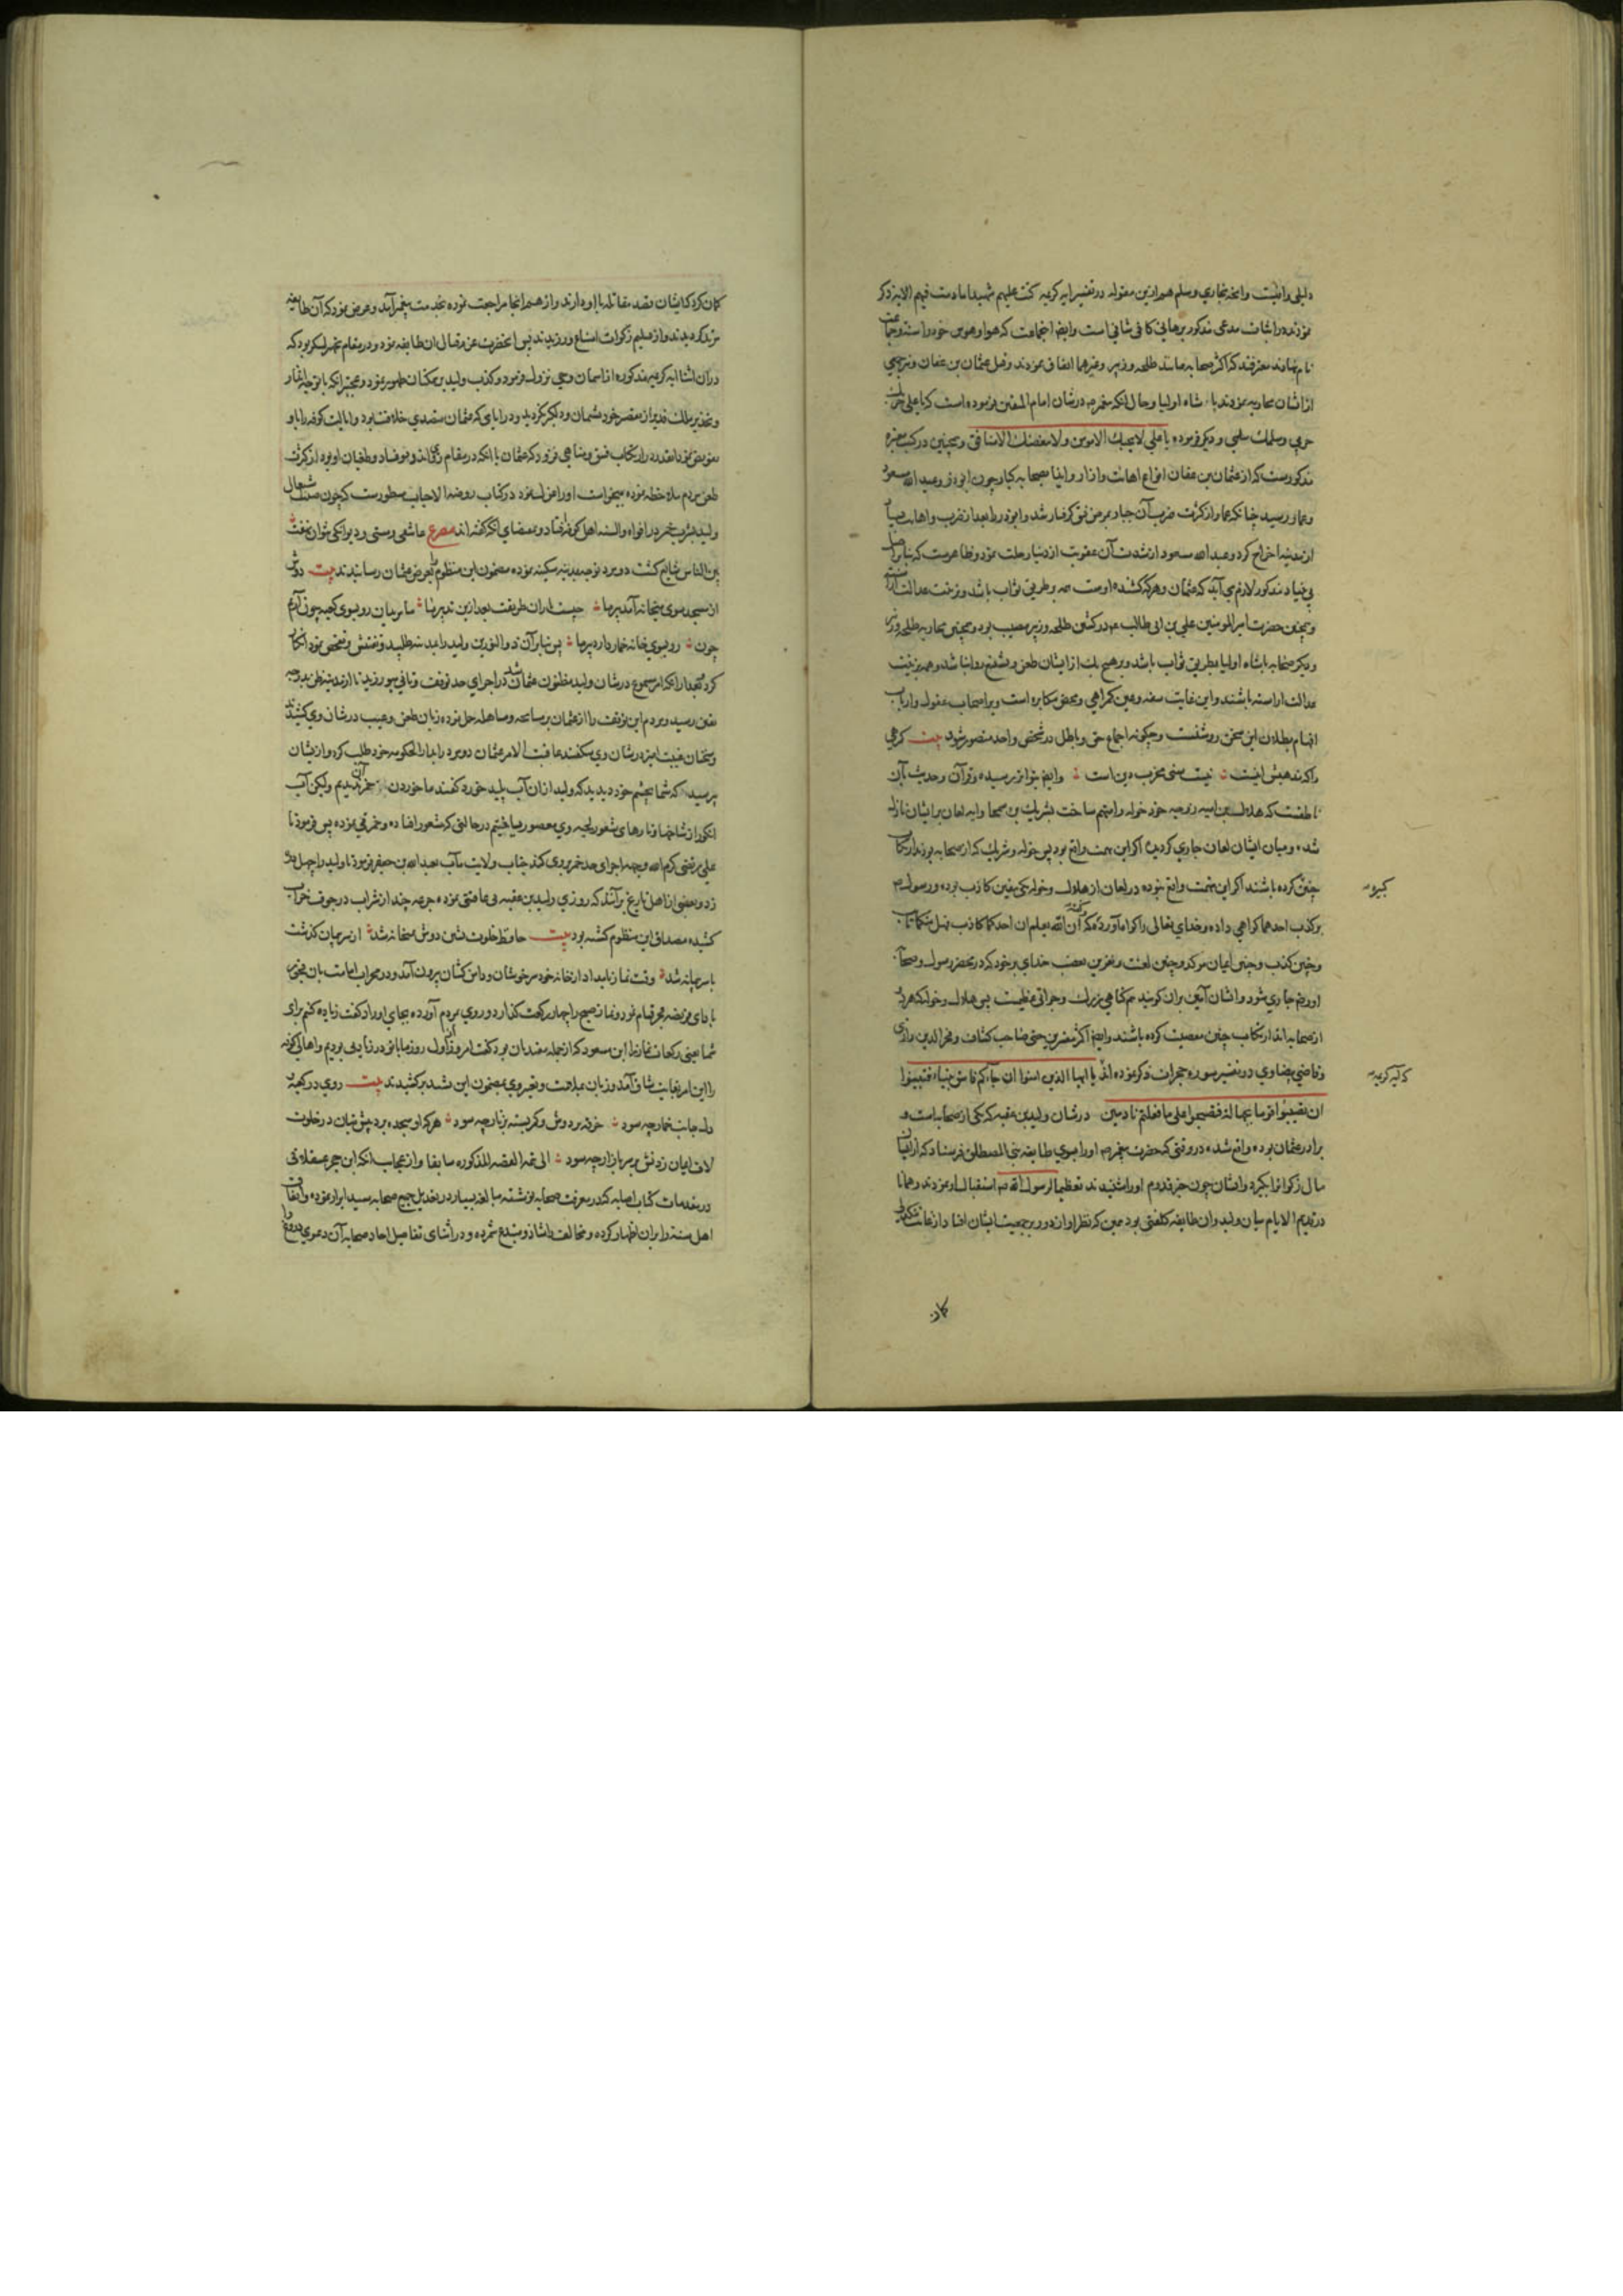 دلیلی وافیست وانچه بخاری ومسلم هم ازین مقوله در تفسیر ایه کریمه کنت علیهم شهیدا ما دمت فیهم الایه ذکر
نموده‌اند در اثبات مدعی مذکور برهانی کافی شافی است وایضا اینجماعت که هوا وهوس خود را سنة وجماعت
نام نهاده‌اند معترفند که اکثر صحابه مانند طلحه وزبیر وغیرهما اتفاق نمودند وقتل عثمان بن عفان ونیز جمعی
از ایشان محاربه نمودند با شاه اولیا وحال انکه پیغمبر در شان امام المتقین فرموده است که یا علی حربک
حربی وسلمک سلمی ودیگر فرموده یا علی لا یحبک الا مومن ولا یبغضک الا منافق وهمچنین در کتب معتبره
مذکورست که از عثمان بن عفان انواع اهانت وازار وایذا بصحابه کبار چون ابوذر وعبد الله مسعود
وعمار رسید چنانکه عمار از کثرت ضرب آن جبار بمرض فتق گرفتار شد وابوذر را بعد از ضرب واهانت بسیار
از مدینه اخراج کرد وعبد الله مسعود از شدت آن عقوبت از دنیا رحلت نمود وظاهرست که بنابر اصل
بی بنیاد مذکور لازم می آید که عثمان وهر که کشنده اوست همه بر طریق ثواب باشند وبزینت عدالت آراسته
وهمچنین حضرت امیر المومنین علی بن ابی طالب هم در کشتن طلحه وزبیر مصیب بود وهمچنین محاربه طلحه وزبیر
ودیگر صحابه با شاه اولیا بطریق ثواب باشد وبر هیچ یک از ایشان طعن وتشنیع روا نباشد وهمه بزینت
عدالت اراسته باشند واین غایت سفه وعین گمراهی ومحض مکابره است وبر اصحاب عقول وارباب
افهام بطلان این سخن روشنست وچگونه اجتماع حق وباطل در شخص واحد متصور شود بیت گرهی
را که مذهبش اینست نیست سنی مخرب دین است وایضا بتواتر رسیده وقرآن وحدیث بآن
ناطقست که هلال بن امیه زوجه خود خوله را متهم ساخت بشریک بن سمحا وایه لعان بر ایشان نازل
شده ومیان ایشان لعان جاری گردید اگر این تهمت واقع بود پس خوله وشریک که از صحابه بودند ارتکاب
چنین کرده باشند اگر این تهمت واقع نبوده در لعان از هلال وخوله یکی یقین کاذب بوده ورسول
کبیره
بر کذب احدهما گواهی داده وخدای تعالی را گواه آورده که گفته آن الله یعلم ان احدکما کاذب فهل منکما تائب
وچنین کذب وچنین ایمان موکد وچنین لعنت ونفرین بغضب خدای بر خود که در محضر رسول وصحابه
او ریم جاری شود وایشان آمین بران گویند هم گناهی بزرگ وجراتی عظیمست پس هلال وخوله که هر دو
از صحابه‌اند ارتکاب چنین معصیت کرده باشند وایضا اکثر مفسرین حتی صاحب کشاف وفخر الدین رازی
وقاضی بیضاوی در تفسیر سوره حجرات ذکر نموده اند یا ایها الذین امنوا ان جاءکم فاسق بنباء فتبینوا
که آیه کریمه
ان تصیبوا قوما بجهالة فتصبحوا علی ما فعلتم نادمین در شان ولید بن عقبه که یکی از صحابه است و
برادر عثمان بوده واقع شده در وقتی که حضرت پیغمبر اورا بسوی طایفه بنی المصطلق فرستاد که از ایشان
مال زکوة را بگیرد وایشان چون خبر قدوم اورا شنیدند تعظیما لرسول الله استقبال او نمودند وهمانا
در قدیم الایام میان ولید وان طایفه کلفتی بود همین که نظر او از دور بر جمعیت ایشان افتاد از غایت تنگدلی
کمان
گمان کرد که ایشان قصد مقاتله با او دارند واز همانجا مراجعت نموده بخدمت پیغمبر آمد وعرض نمود که آن طایفه
مرتد گردیدند واز تسلیم زکوات امتناع ورزیدند پس انحضرت عزم قتال ان طایفه نمود ودر مقام تجهیز لشکر بود که
دران اثنا ایه کریمه مذکوره از اسمان وحی نزول فرمود وکذب ولید بر همکنان ظهور نمود وعجبتر انکه با توجه انذار
وتحذیر ملک قدیر از مقصر خود شیمان ودلگیر نگردید ودر ایامی که عثمان متصدی خلافت بود وایالت کوفه را باو
تفویض نمود انقدر در ارتکاب فسق ومناهی فزود که عثمان با انکه در مقام رعایت او بود وفساد وطغیان او بود از کثرت
طعن مردم ملاحظه نموده میخواست اورا عزل نمود در کتاب روضة الاحباب مسطورست که چون صیت اشتغال
ولید بشرب خمر در افواه والسنه اهل کوفه افتاد وبمقتضای انکه گفته اند مصرع عاشقی ومستی ودیوانگی نتوان نهفت
بین الناس شایع گشت دو مرد توجه بمدینه سکینه نموده مضمون این منظوم را بعرض عثمان رسانیدند بیت دوش
از مسجد سوی میخانه آمد پیر ما چیست یاران طریقت بعد ازین تدبیر ما ما مریدان رو بسوی کعبه چون آریم
چون رو بسوی خانه خمار دارد پیر ما پس بنابر آن ذو النورین ولید را بمدینه طلبید وتفتیش وتفحص نمود انکار
کرد بمجرد انکه از مسموع در شان ولید مظنون عثمان شد در اجرای حد توقف وتانی میورزید تا از مرتبه ظن بدرجه
یقین رسید ومردم این توقف را از عثمان بر مسامحه ومساهله حمل نموده زبان طعن وعیب در شان وی کشیدند
وسخنان غیبت امیز در شان وی میگفتند عاقبت الامر عثمان دو مرد را بدار الحکومه خود طلب کرد واز ایشان
پرسید که شما بچشم خود دیدید که ولید از ان آب پلید خورد گفتند ما خوردن آن خمر ندیدیم ولیکن آب
انگور از شاخها وتارهای شعور لحیه وی معصور میساختیم در حالتی که مستی افتاده وخمر قی نموده پس فرمود تا
علی مرتضی کرم الله وجهه اجرای حد خمر بروی کند جناب ولایت مآب بعبد الله بن جعفر فرمود تا ولید را چهل تازیانه
زد وبعضی از اهل تاریخ برآنند که روزی ولید بن عقبه بی عاقبتی نموده جرعه چند از شراب در جوف خراب
کشیده مصداق این منظوم گشته بود بیت حافظ خلوت نشین دوش بمیخانه شد از سر پیمان گذشت
با سر پیمانه شد وقت نماز بامداد از خانه خود سرخوشان ودامن کشان برون آمد ودر محراب امامت بان
بادای فریضه فجر قیام نمود ونماز صبح را چهار رکعت گذارد وروی بمردم آورده بجای اوراد گفت زیاده کنم برای
شما یعنی رکعات نماز را ابن مسعود که از جمله مقتدیان بود گفت امروز از اول روز ما با تو در زیادتی بودیم واهالی کوفه
را این امر بغایت شاق آمد وزبان بملامت وتعییر وی بمضمون این نشید برکشیدند بیت روی در کعبه
دل جانب خمار چه سود خرقه بر دوش وکمر بسته بزنار چه سود هر که او سجده برد پیش بتان در خلوت
لاف ایمان زدنش بر سر بازار چه سود الی تمه القصه المذکوره سابقا واز عجایب انکه ابن حجر عسقلانی
در مقدمات کتاب اصابه که در معرفت صحابه نوشته مبالغه بسیار در تعدیل جمیع صحابه سید ابرار نموده واتفاق
اهل سنة را بران اظهار کرده ومخالف را شاذ ومبتدع شمرده ودر اثنای تفاصیل احاد صحابه آن دعوی دروغ را